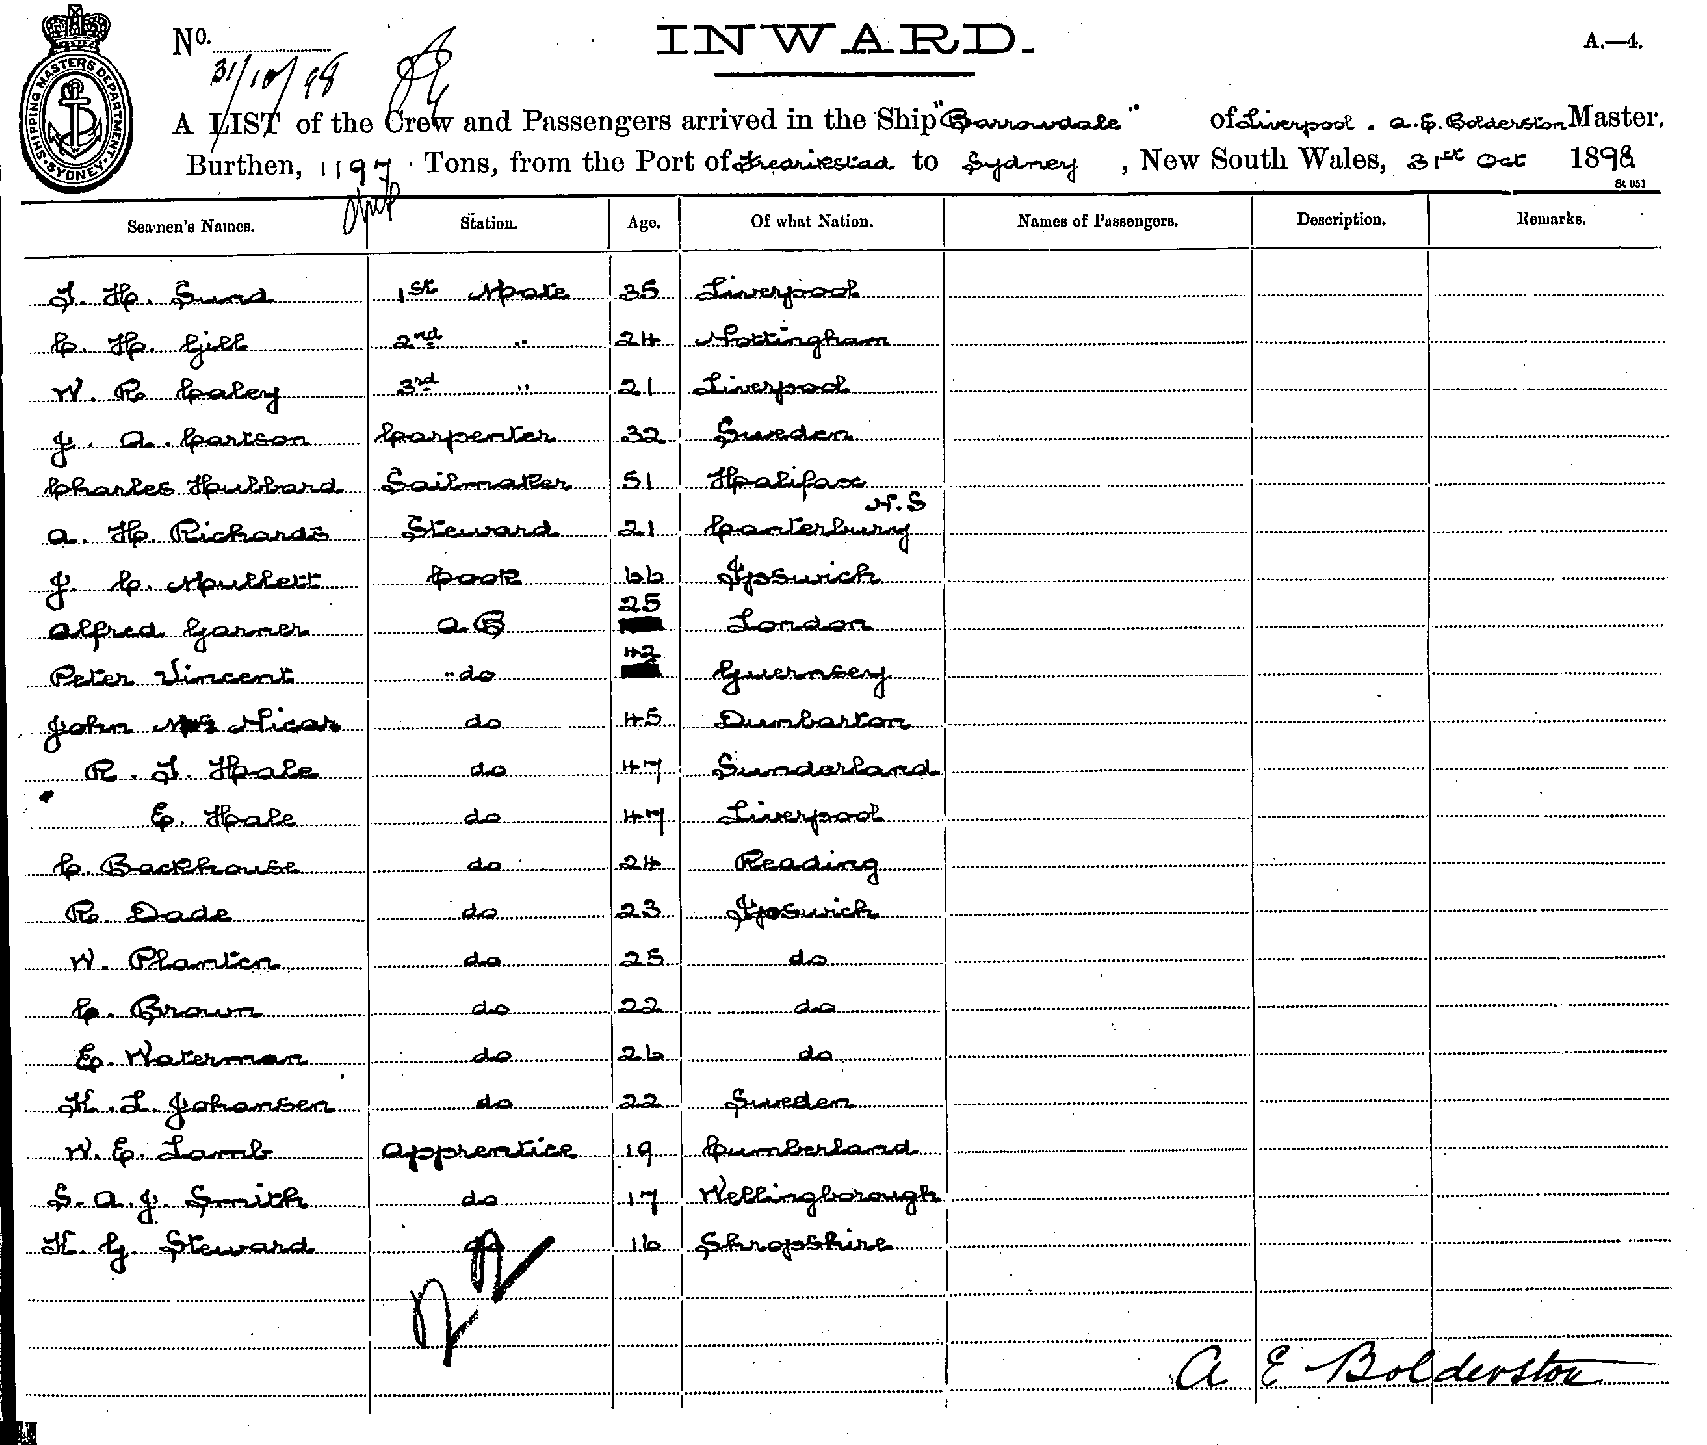 INWARD.
A.—4.
No.
31/10/98
SHIPPING MASTERS DEPARTMENT. SYDNEY.
A LIST of the Crew and Passengers arrived in the Ship "Barrowdale" of Liverpool. A. E. Bolderston Master,
Burthen, 1197 Tons, from the Port of Frearikstad to Sydney, New South Wales, 31st Oct 1898
Seamen's Names. Station. Age. Of what Nation. Names of Passengers. Description. Remarks.
J. H. Sund 1st Mate 35 Liverpool
C. H. Gill 2nd " 24 Nottingham
W. R. Caley 3rd " 21 Liverpool
J. A. Carlson Carpenter 32 Sweden
Charles Hubbard Sailmaker 51 Halifax N.S
A. H. Richards Steward 21 Canterbury
J. C. Mullett Cook 66 Ipswich
Alfred Garner A.B 25 London
Peter Vincent "do 42 Guernsey
John Nicar do 45 Dunbarton
R. J. Hale do 47 Sunderland
E. Hale do 47 Liverpool
C. Backhouse do 24 Reading
R. Dade do 23 Ipswich
W. Planten do 25 do
C. Brown do 22 do
E. Waterman do 26 do
K. L. Johansen do 22 Sweden
W. E. Lamb Apprentice 19 Cumberland
S. A. J. Smith do 17 Wellingborough
K. G. Steward do 16 Shropshire
A E Bolderston